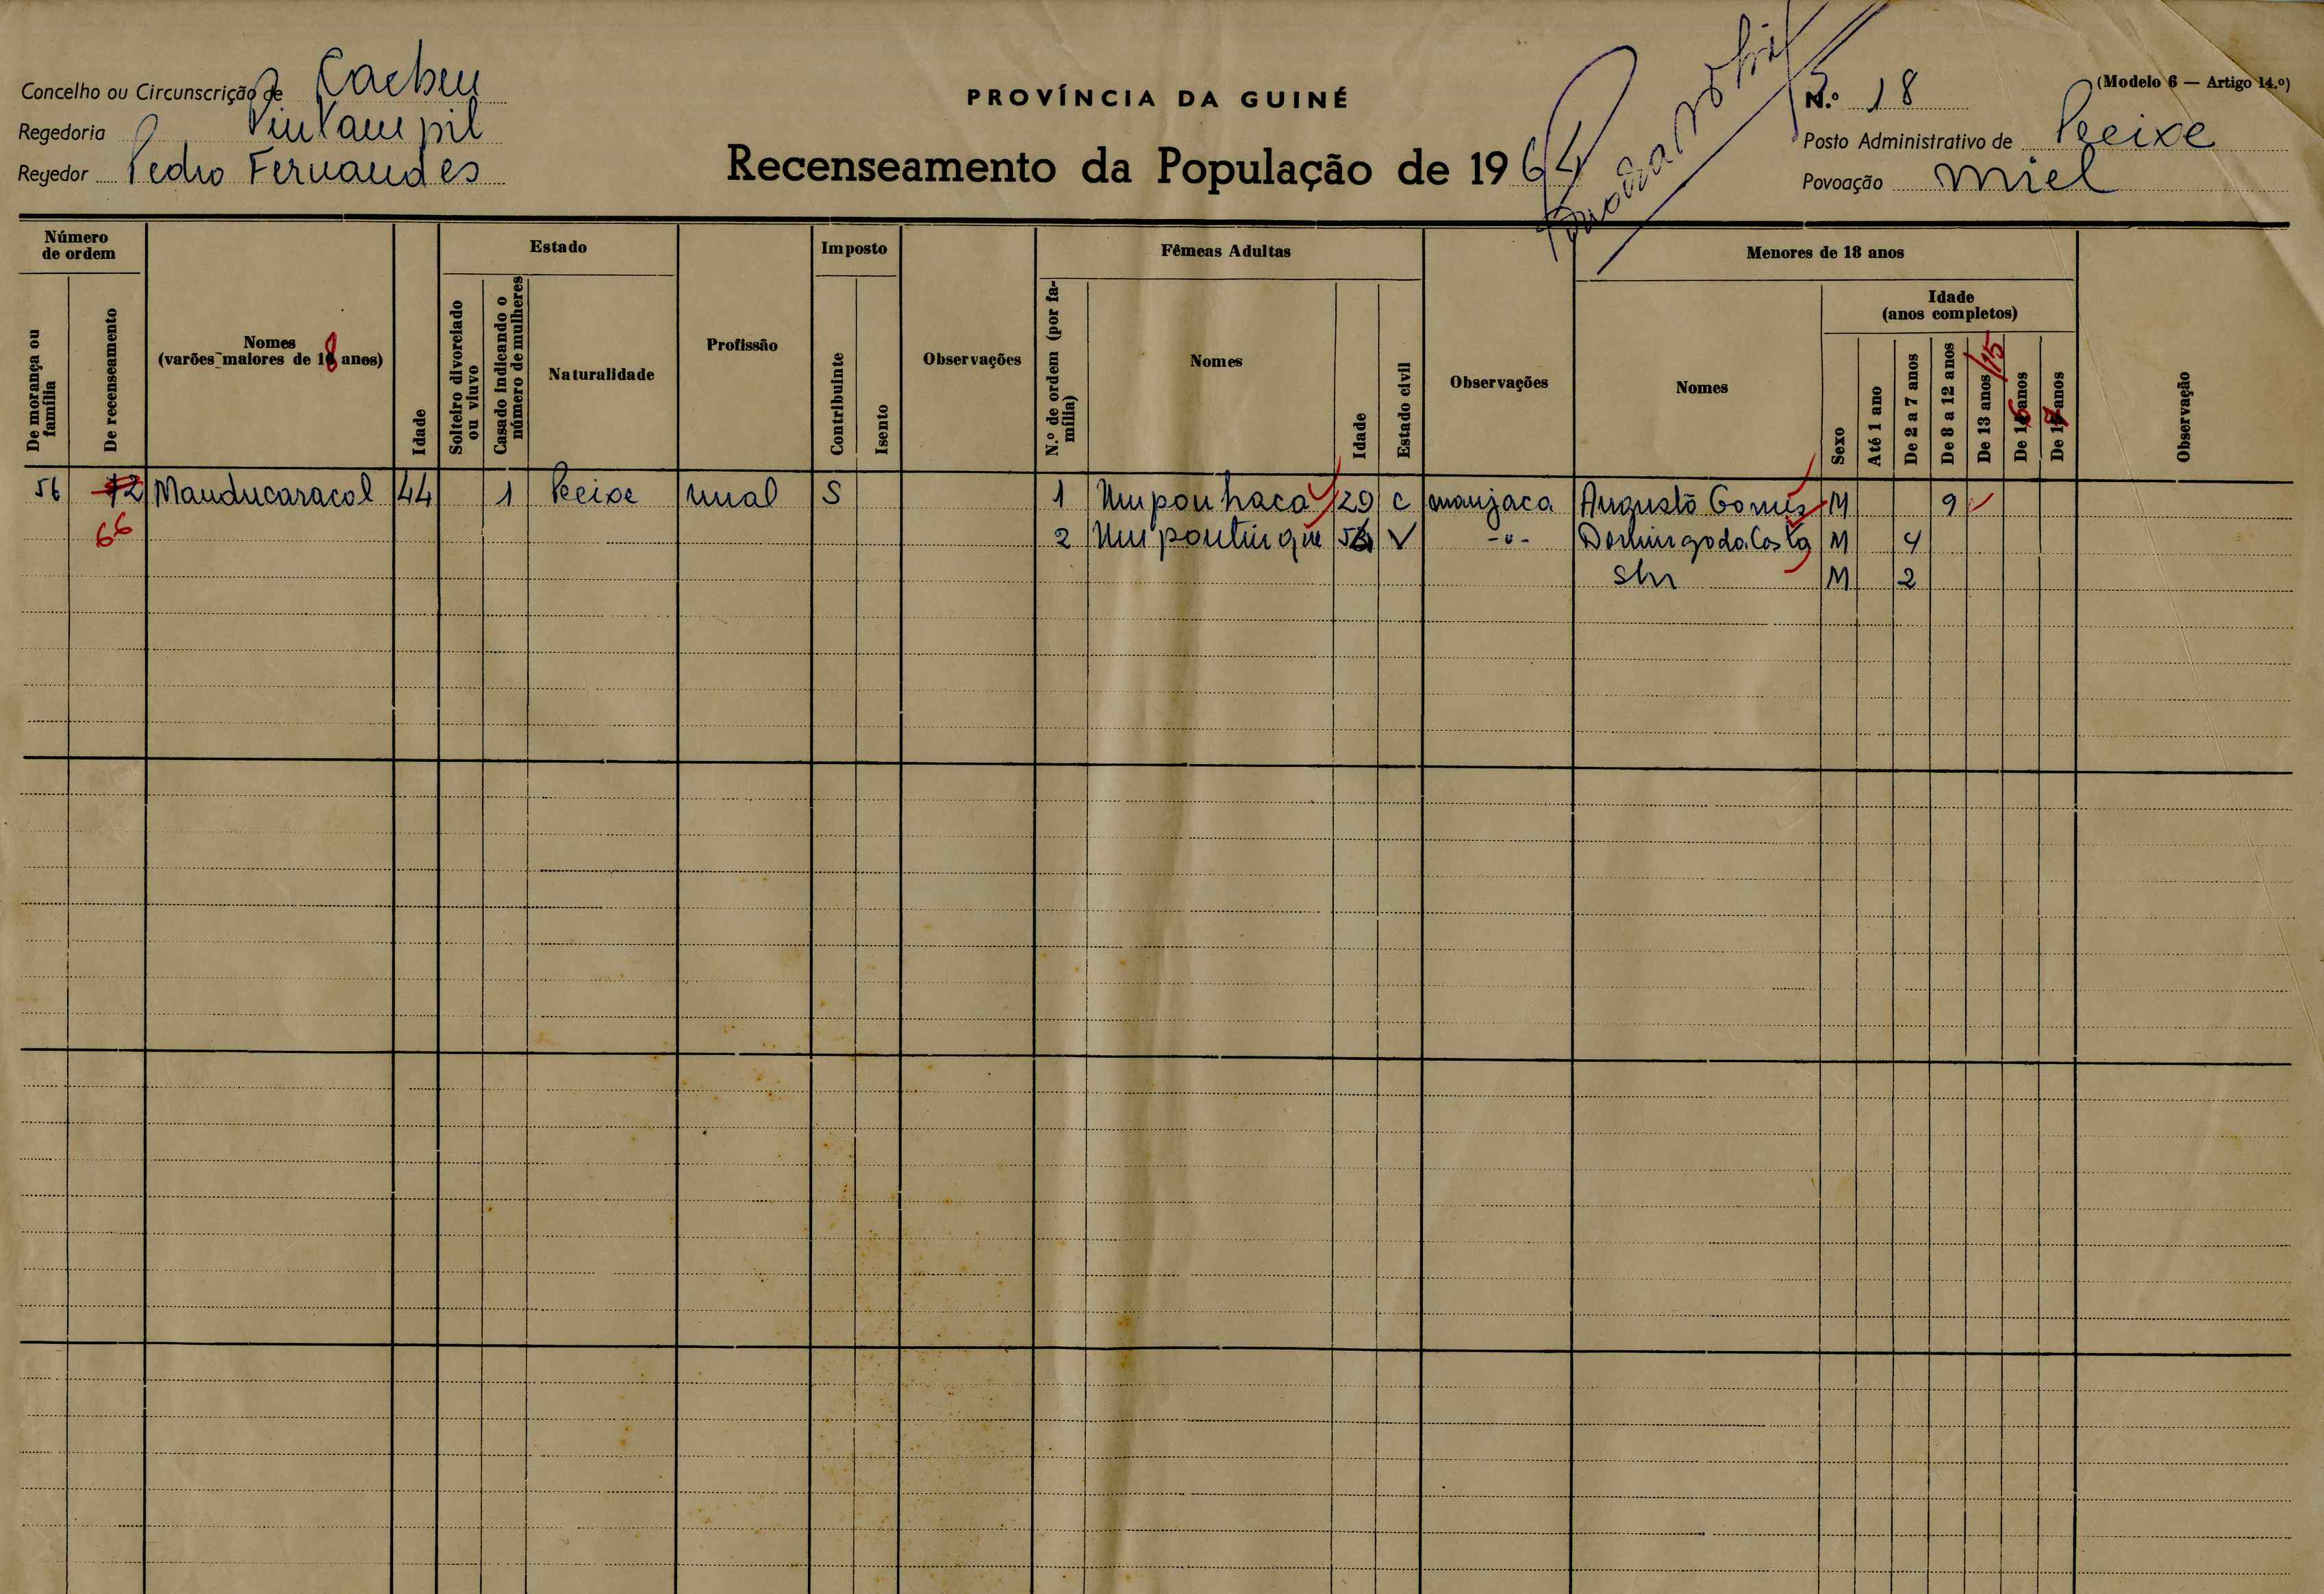 Concelho ou Circunscrição de Cacheu
Regedoria
Regedor Pedro Fernandes
PROVÍNCIA DA GUINÉ
Recenseamento da População de 1964
(Modelo 6 — Artigo 14.º)
N.º 18
Posto Administrativo de Pecixe
Povoação Miel
Número de ordem
De morança ou família
De recenseamento
Nomes
(varões maiores de 18 anos)
Idade
Estado
Solteiro divorciado ou viuvo
Casado indicando o número de mulheres
Naturalidade
Profissão
Imposto
Contribuinte
Isento
Observações
Fêmeas Adultas
N.º de ordem (por família)
Nomes
Idade
Estado civil
Observações
Menores de 18 anos
Nomes
Sexo
Idade
(anos completos)
Até 1 ano
De 2 a 7 anos
De 8 a 12 anos
De 13 anos /15
De 16 anos
De 17 anos
Observação
56 72 Manducaracol 44 1 Pecixe rural S 1 Umponhaca 29 C manjaca Augusto Gomes M 9
66 2 Umpontingue V -"- Domingo da Costa M 4
S/n M 2